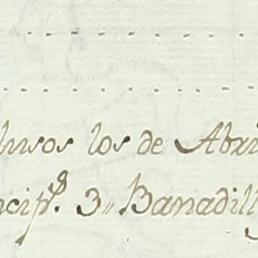 lusos los de Abri
ncip.s 3,, Banadill